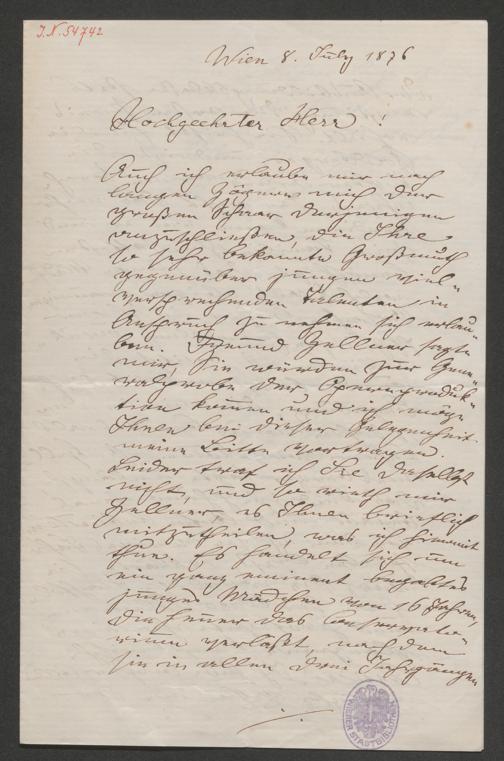 I.N. 54742
Wien 8. July 1876
Hochgeehrter Herr!
Auch ich erlaube mir nach
langem Zögern mich der
großen Schaar derjenigen
anzuschließen, die Ihre
so sehr bekannte Großmuth
gegenüber jungen viel-
versprechenden Talenten in
Anspruch zu nehmen sich erlau-
ben. Freund Zellner sagte
mir, Sie würden zur Gene-
ralprobe der Opernproduk-
tion kommen und ich möge
Ihnen bei dieser Gelegenheit
meine Bitte vortragen.
Leider traf ich Sie daselbst
nicht, und so rieth mir
Zellner, es Ihnen brieflich
mitzutheilen, was ich hiemit
thue. Es handelt sich um
ein ganz eminent begabtes
junges Mädchen von 16 Jahren,
die heuer das Conservato-
rium verläßt, nach dem
sie in allen drei Jahrgängen
WIENER STADTBIBLIOTHEK